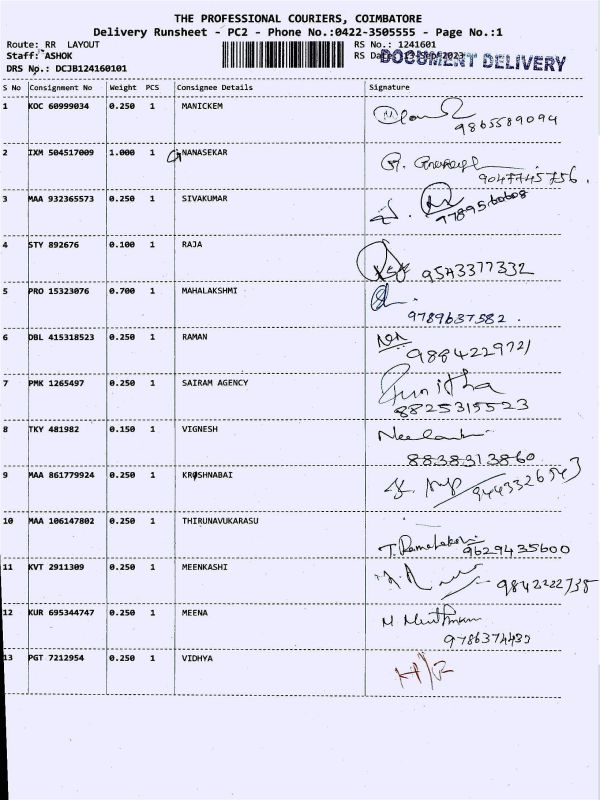 THE PROFESSIONAL COURIERS, COIMBATORE
Delivery Runsheet - PC2 - Phone No.:0422-3505555 - Page No.:1
Route: RR LAYOUT
RS No.: 1241601
Staff: ASHOK
RS Da
DOCUMENT DELIVERY
DRS No.: DCJB124160101
S No Consignment No Weight PCS Consignee Details Signature
1 KOC 60999034 0.250 1 MANICKEM
9865589094
2 IXM 504517009 1.000 1 GNANASEKAR
9047745756.
3 MAA 932365573 0.250 1 SIVAKUMAR
4 STY 892676 0.100 1 RAJA
9543377332
5 PRO 15323076 0.700 1 MAHALAKSHMI
9789637582.
6 DBL 415318523 0.250 1 RAMAN
9884229721
7 PMK 1265497 0.250 1 SAIRAM AGENCY
Punitha
8825315523
8 TKY 481982 0.150 1 VIGNESH
8838313860
9 MAA 861779924 0.250 1 KRISHNABAI
9443326543
10 MAA 106147802 0.250 1 THIRUNAVUKARASU
9629435600
11 KVT 2911309 0.250 1 MEENKASHI
9842222735
12 KUR 695344747 0.250 1 MEENA
9786374433
13 PGT 7212954 0.250 1 VIDHYA